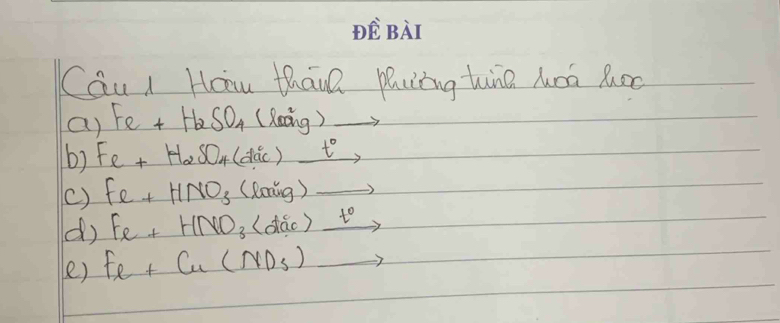 ĐỀ BÀI
Câu 1 Hoàn thành phương trình hoá học
a) Fe + H2SO4 (loãng) →
b) Fe + H2SO4 (đặc) t° →
c) Fe + HNO3 (loãng) →
d) Fe + HNO3 (đặc) t° →
e) Fe + Cu (NO3) →